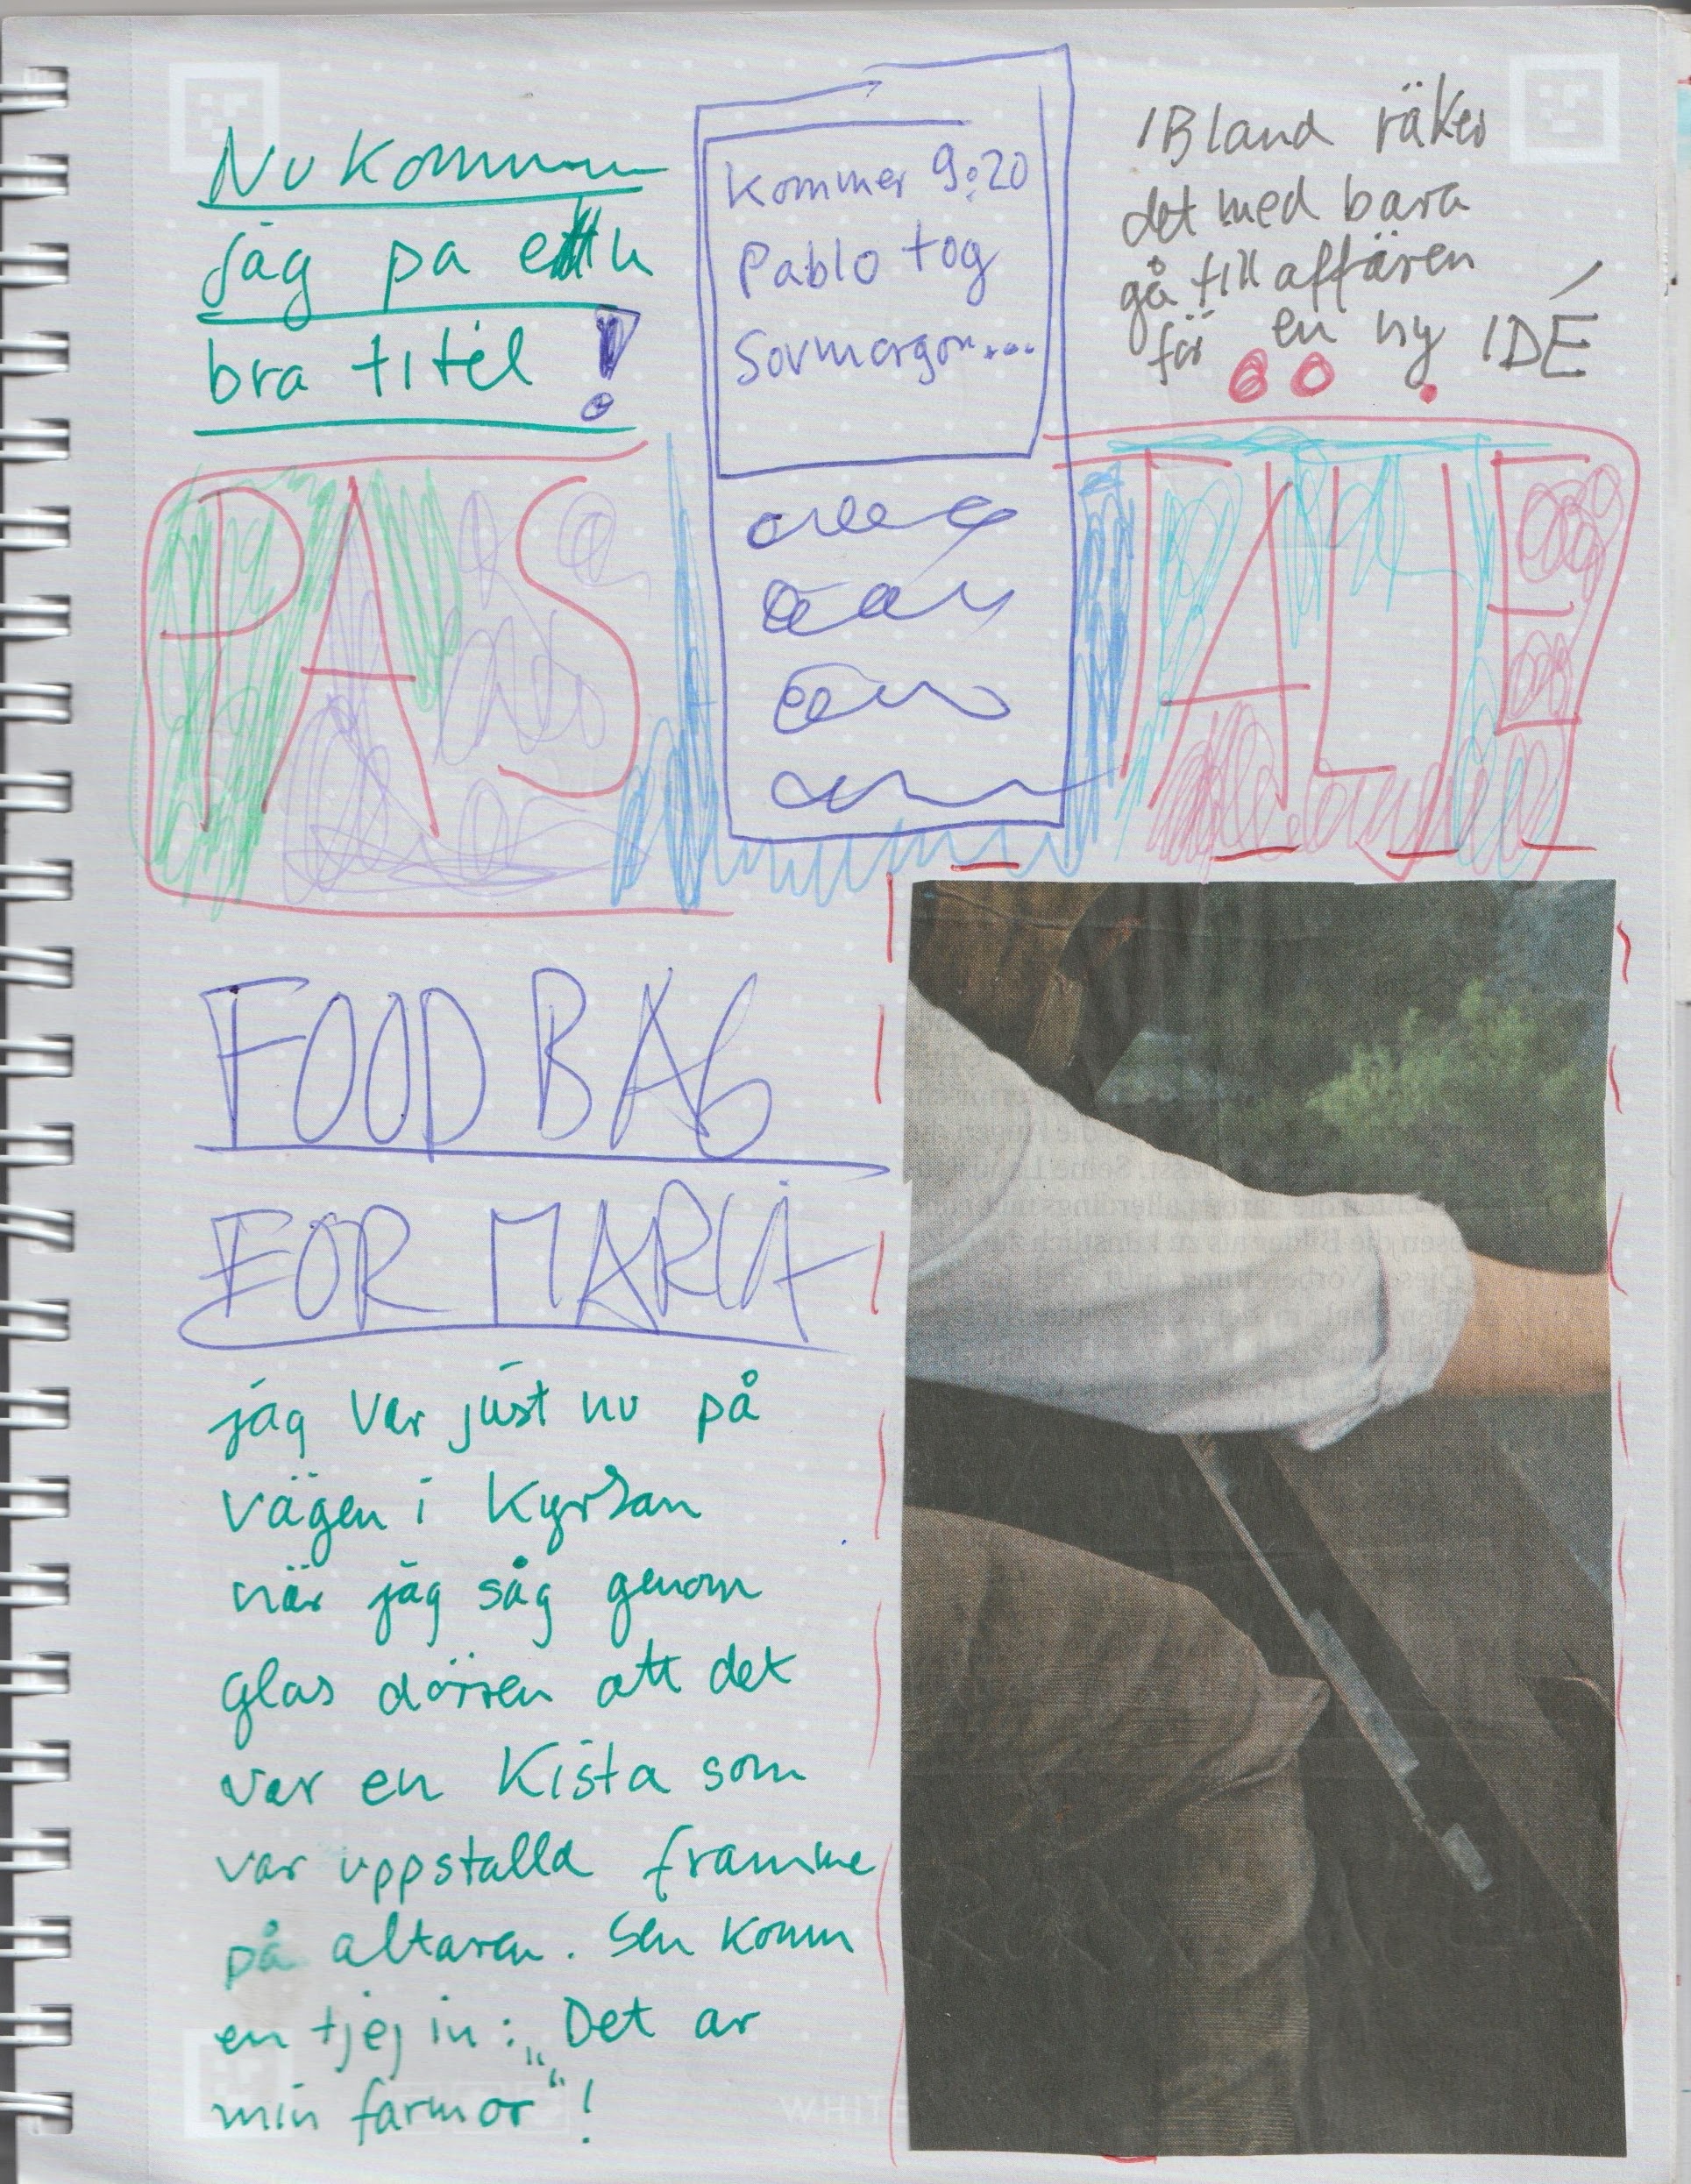 Nu kommer
jag pa en
bra titel !
Kommer 9:20
Pablo tog
Sovmorgon...
IBland räker
det med bara
gå till affären
för en ny IDÉ
PAS TALJE
FOOD BAG
FOR MARIA
jag var just nu på
vägen i Kyrkan
när jag såg genom
glas dörren att det
var en Kista som
var uppstalld framme
på altaren. Sen komm
en tjej in: „Det ar
min farmor“!